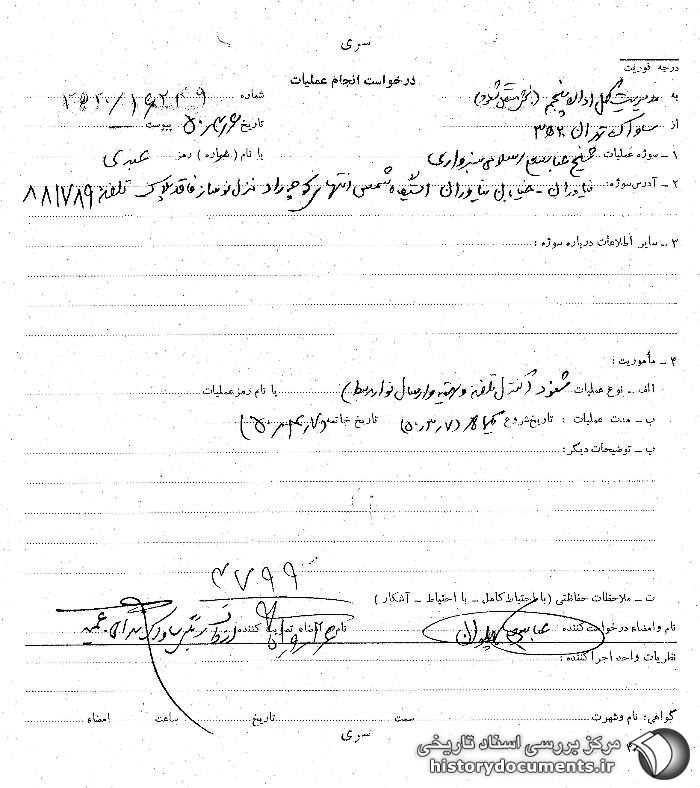 سری
درجه فوریت
درخواست انجام عملیات
به مدیریت کل اداره پنجم (بخش مستقل شنود) شماره
از ساواک تهران ۳۵۲۰ تاریخ پیوست
۱ـ سوژه عملیات شیخ عباسعلی اسلامی سبزواری با نام (شماره) رمز عبدی
۲ـ آدرس سوژه: نیاوران - خیابان نیاوران ایستگاه شمس انتهای کوچه راد منزل نوساز فاقد پلاک تلفن ۸۸۱۷۸۹
۳ـ سایر اطلاعات درباره سوژه:
۴ـ مأموریت:
الف ـ نوع عملیات شنود (کنترل تلفن و تهیه و ارسال نوار ضبط) با نام رمز عملیات
ب ـ مدت عملیات: تاریخ شروع (۵۰٫۳٫۷) تاریخ خاتمه (۵۰٫۴٫۷)
پ ـ توضیحات دیگر:
۳۷۹۹
ت ـ ملاحظات حفاظتی (با احتیاط کامل ـ با احتیاط ـ آشکار)
نام و امضاء درخواست کننده نام و امضاء کننده
نظریات واحد اجرا کننده:
گواهی: نام و شهرت سمت تاریخ ساعت امضاء
سری
مرکز بررسی اسناد تاریخی
historydocuments.ir